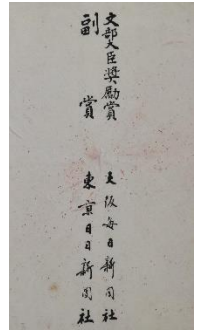 文部大臣奨励賞
副賞
大阪毎日新聞社
東京日日新聞社